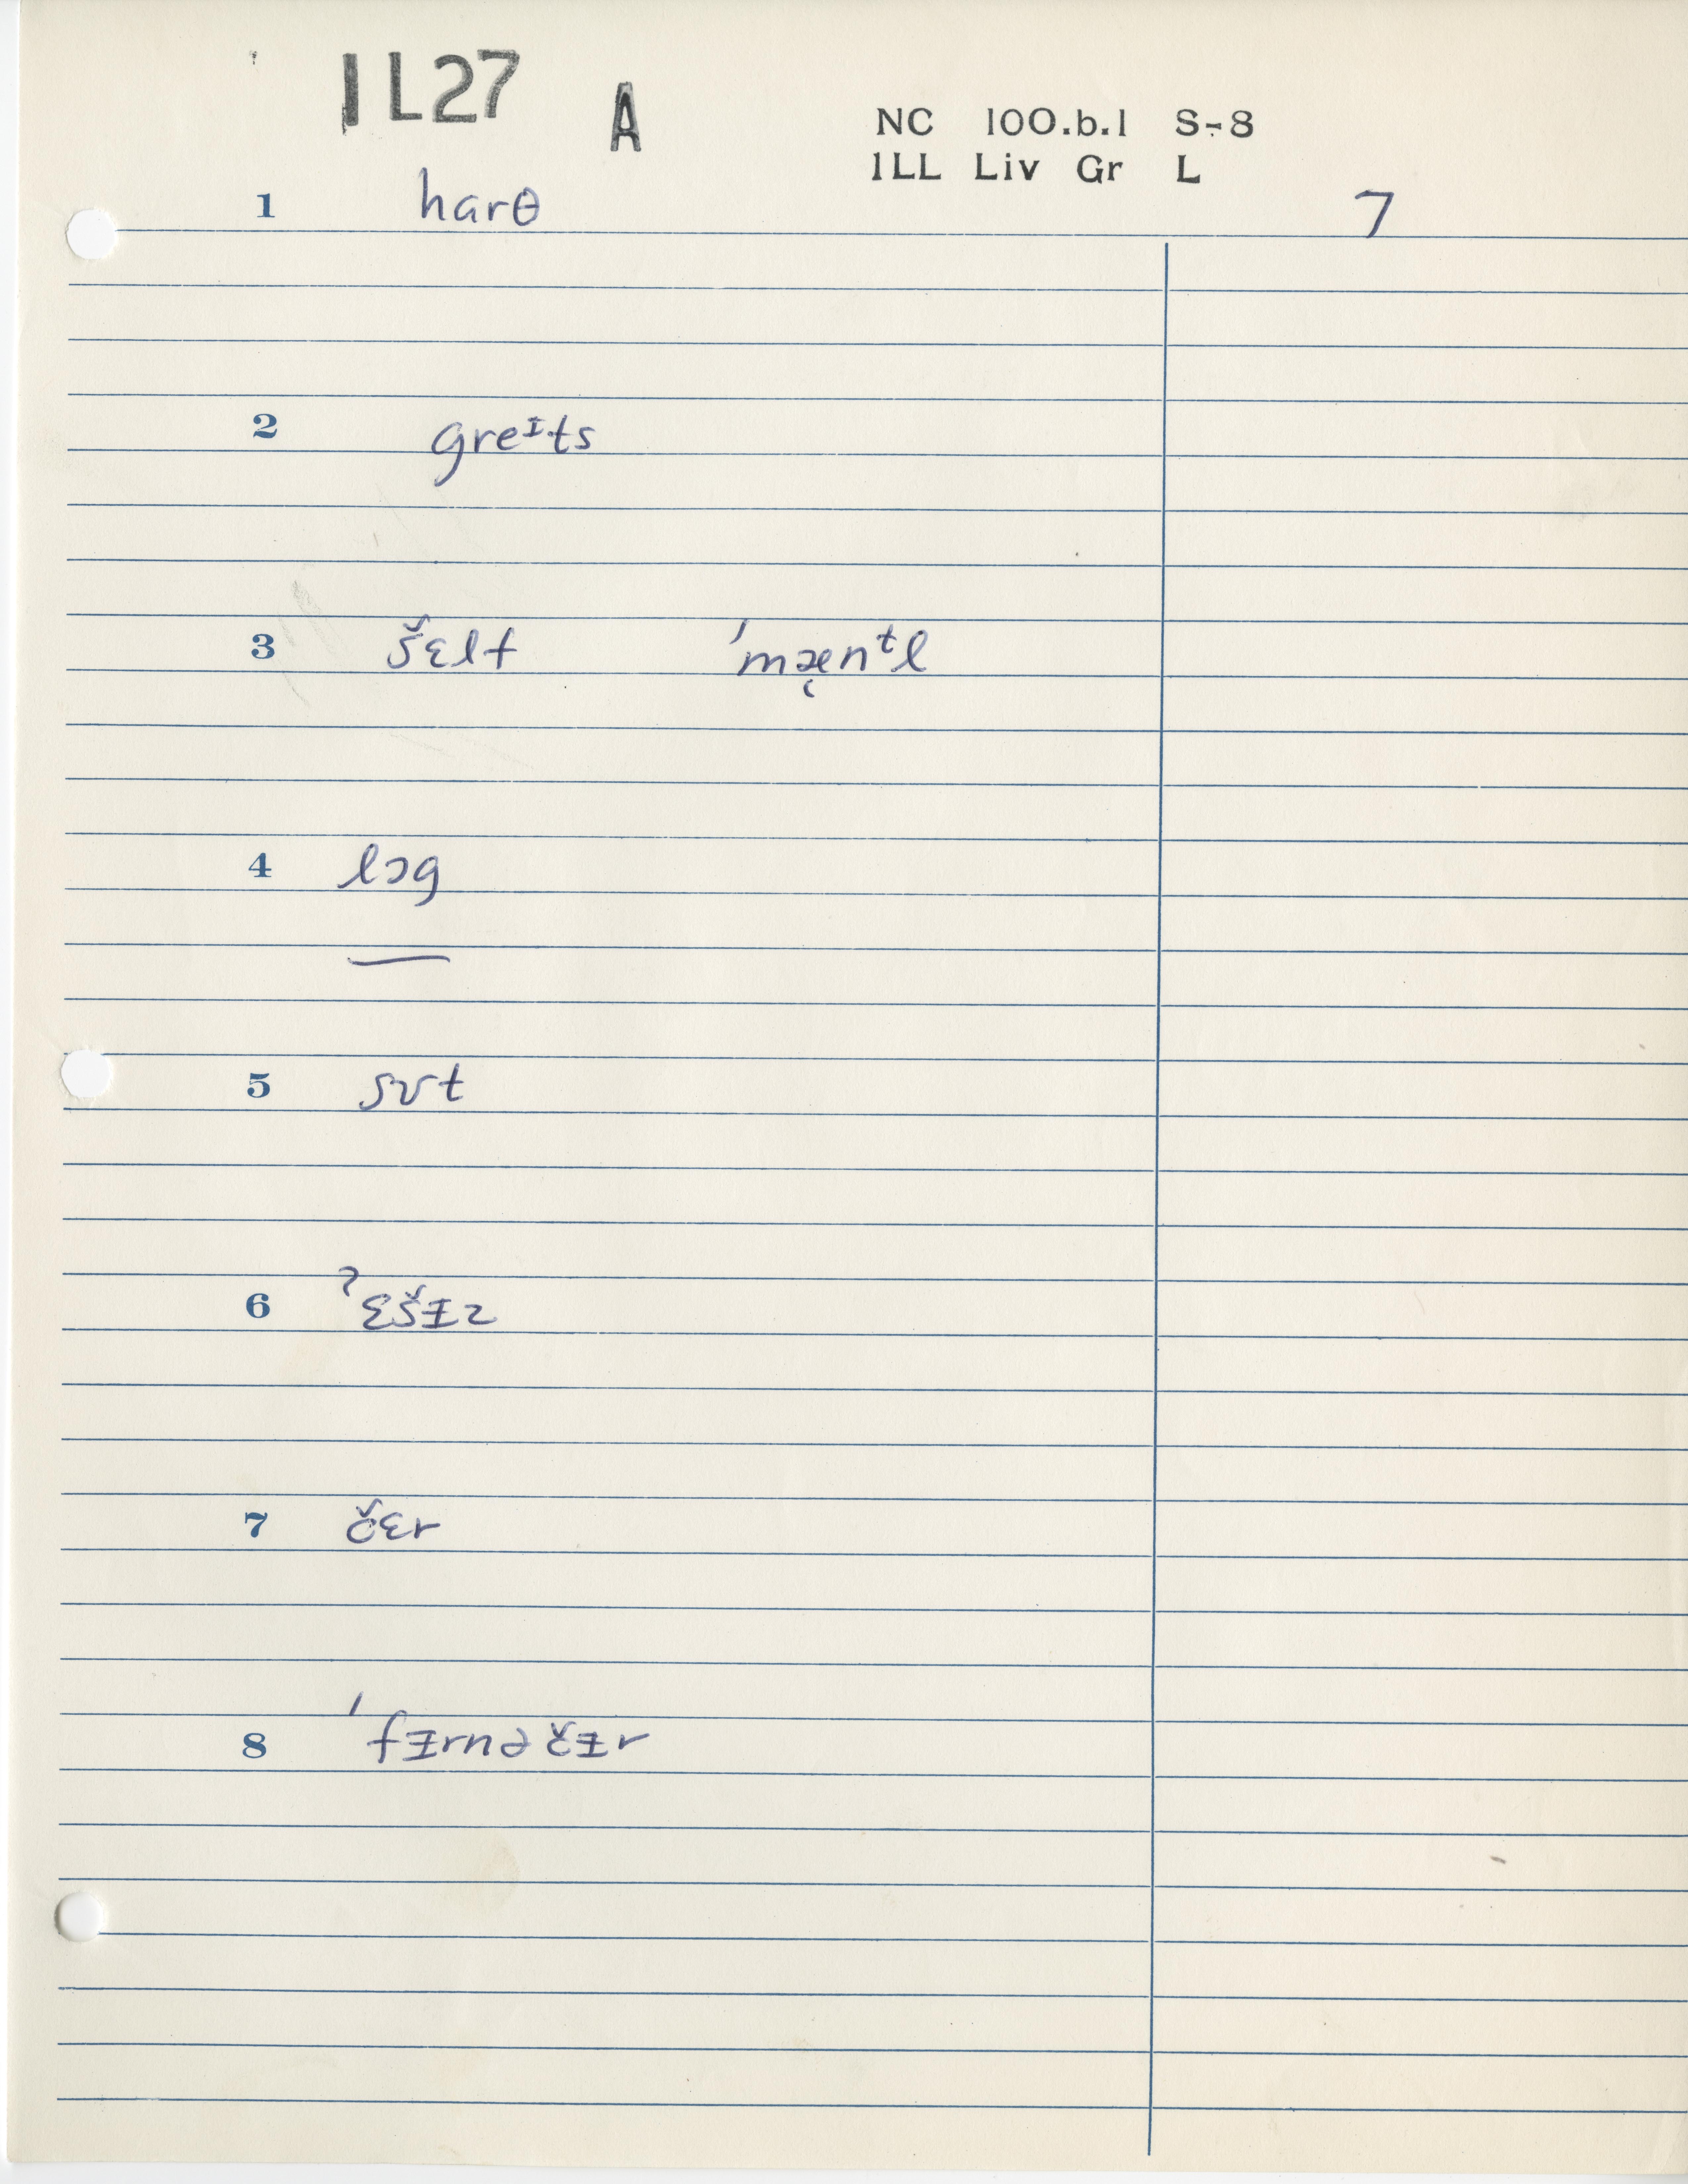 1L27 A
NC 100.b.1 S-8
ILL Liv Gr L
1 harθ 7
2 greᶦts
3 šɛlf 'mæ̨nᵗl
4 lɔg
—
5 sʊt
6 ˀɛšɪz
7 čɛr
8 'fɪrnəčɪr